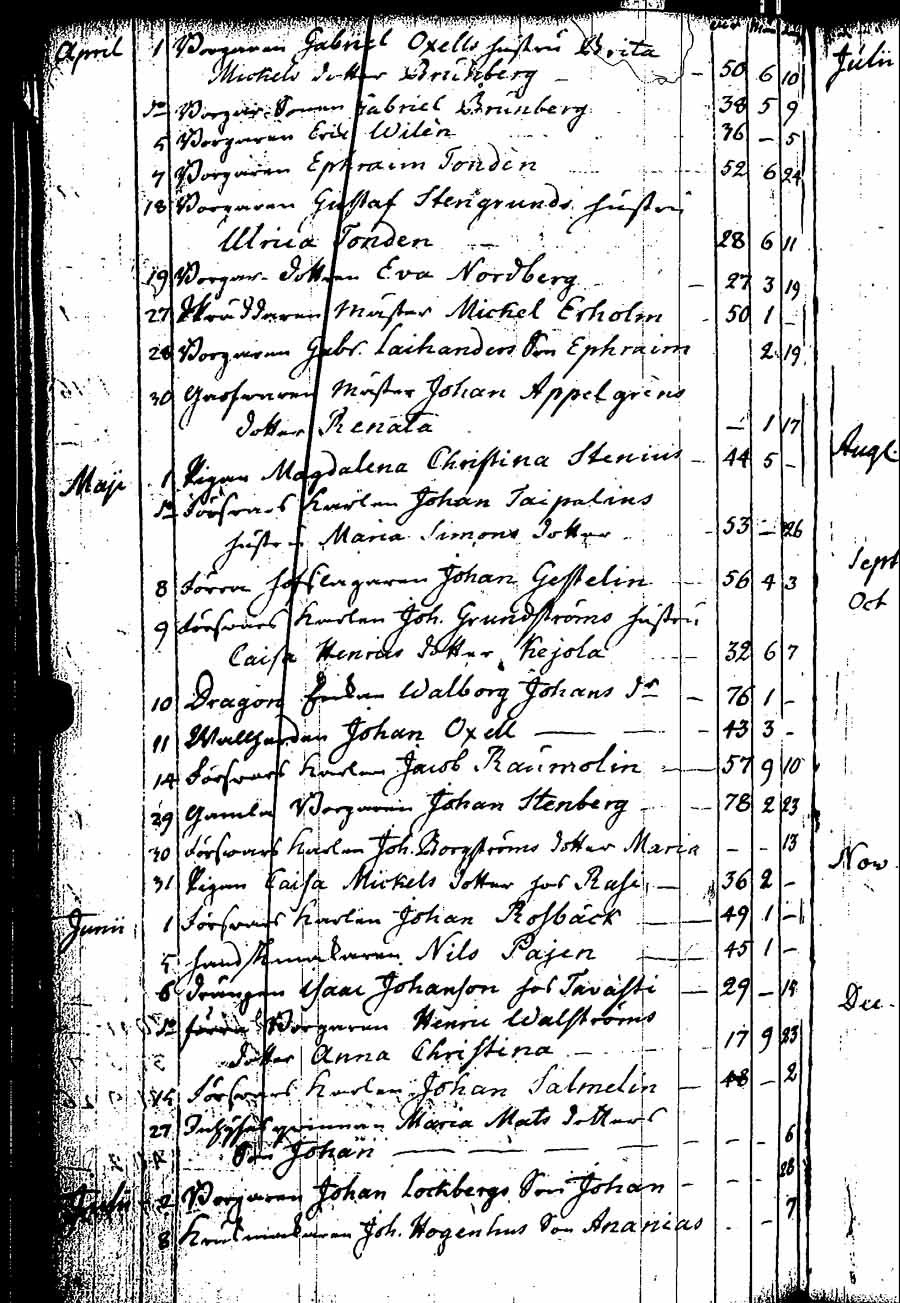 åer mån dag
April 1 Borgaren Gabriel Oxells hustru Brita
Mickels dotter Brunberg – – 50 6 10
Do Borgar Sonen Gabriel Brunberg 38 5 9
5 Borgaren Eric Wilèn 36 – 5
7 Borgaren Ephraim Tondèn 52 6 24
18 Borgaren Gustaf Stengrunds hustru
Ulrica Tonden – 28 6 11
19 Borgar-dottren Eva Nordberg – 27 3 19
27 Skräddaren Mäster Mickel Erholm – 50 1 –
28 Borgaren Gabr. Laihanders Son Ephraim 2 19
30 Mäster Johan Appelgrèns
dotter Renata – 1 17
Maji 1 Pigan Magdalena Christina Stenius – 44 5 –
Do Försvars Karlen Johan Taipalius
hustru Maria Simons dotter 53 – 26
8 Förra hofslagaren Johan Gestelin 56 4 3
9 Försvars Karlen Joh. Grundströms hustru
Caisa Henrics dotter Kejola 32 6 7
10 Dragon Enkan Walborg Johans dr – 76 1 –
11 Johan Oxell – – 43 3 –
14 Försvars Karlen Jacob Raumolin – 57 9 10
29 Gamla Borgaren Johan Stenberg – 78 2 23
30 Försvars Karlen Joh. Borgströms dotter Maria – – 13
31 Pigan Caisa Mickels dotter hos Rase – 36 2 –
Junii 1 Försvars Karlen Johan Rosbäck – 49 1 –
5 Handskmakaren Nils Pajen – 45 1 –
6 Drängen Isaac Johanson hos Tavasti – 29 – 15
Do Borgaren Henric Walströms
dotter Anna Christina – 17 9 23
15 Försvars Karlen Johan Salmelin – 48 – 2
27 Inhyses qvinnan Maria Mats dotters
Son Johan – – – – – – 6
28
Julii – 2 Borgaren Johan Lockbergs Son Johan – – 7
8 Krukmakaren Joh. Hogenhus Son Ananias – –
Julii
Augt.
Sept
Oct
Nov
Dec.